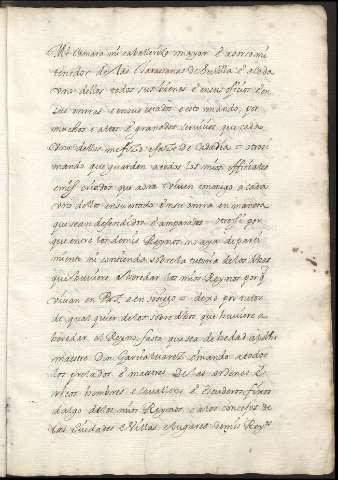 Mi camara mi caballerizo mayor e a on come
tenedor de las Taraçanas de Sevilla e a cada
uno dellos todos sus bienes e en sus officios e en
sus onrras e en sus estados e esto mando, por
muchos e altos e granados servicios que cada
uno dellos me fizo e faze de cada dia e otrosi
mando que guarden a todos los mios officiales
e mis criados que aora viven conmigo a cada
uno dellos en su estado e en su onrra en manera
que sean defendidos e amparados otrosi por
que entre los de mis Reynos no aya departi
miento ni contienda sobre la tutoria de los dhos
que huviere a heredar los mios Reynos por q
vivan en Paz e en sosiego dexo por tutor
de qual quier de los sobredhos que huviere a
heredar el Reyno fasta que sea de hedad a
maestre Don Garcialvarez e mando a todos
los prelados e maestres de las ordenes e
ricos hombres e cavalleros e Escuderos, fijos
dalgo de los mios Reynos e a los concejos de
las Ciudades e Villas e lugares de mis Reynos